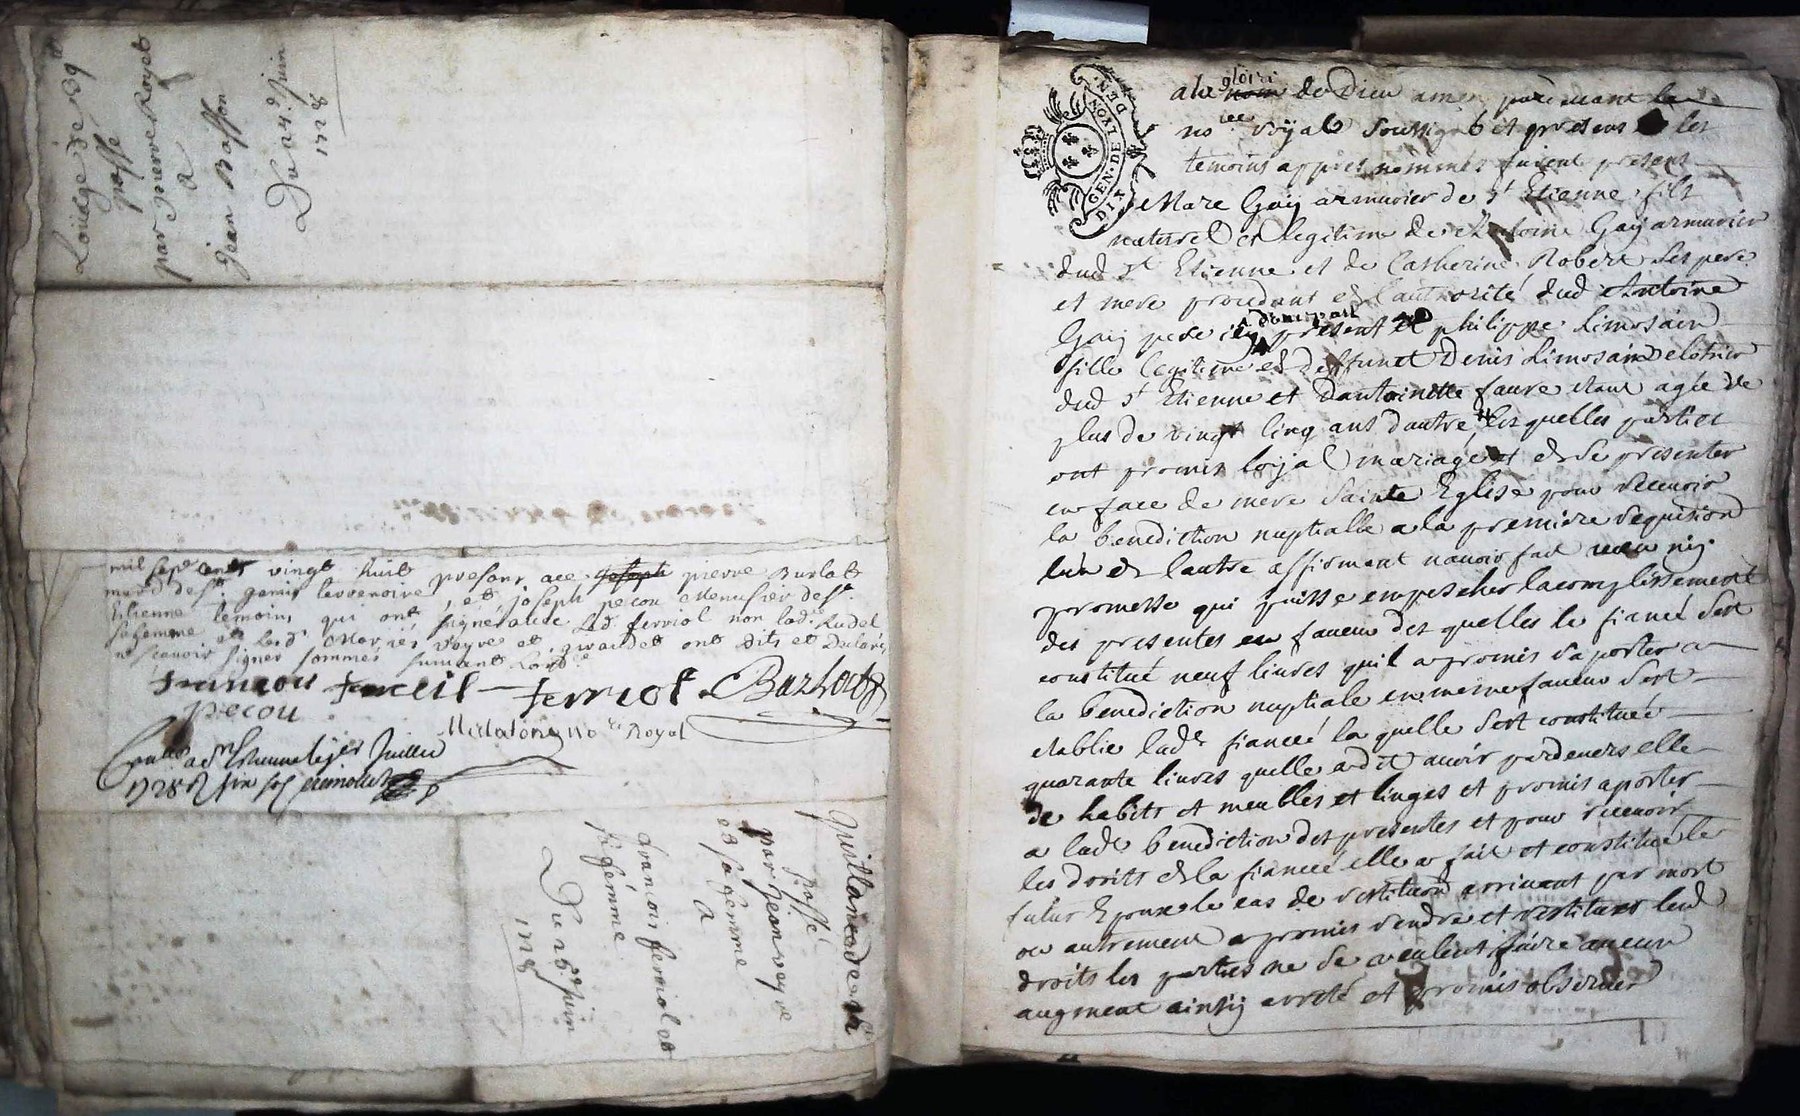 Louage de 139#
passé
par pierre Royet
a
jean Basson
Du 24.e Juin
1728
mil sept cents vingt huit presans ace Joseph pierre Burlat
Etienne temoins qui ont signé avec led. ferriol non lad.
sa femme et lesd. mariés veyre et ont dits et
scavoir signer sommés suivant lord.e
françou ferriol Burlat
pecou
Matalon No.re Royal
a St Etienne le Juillet
1728
Quittance de
passé
par Jean veyre
et sa femme
a
francois ferriol et
sa femme
Du 26e Juin
1728
GEN. DE LYON. DEN.
DIX
a la gloire nom de Dieu amen pardevant le
no.re royal soussigné et presens les
temoins appres nommés furent presens
Marc Gay armurier de St Etienne fils
naturel et legitime de Antoine Gay armurier
dud St Etienne et de Catherine Robert ses pere
et mere procedant de l'authorité dud Antoine
Gay pere icy present d'une part et philippe Limosain
fille legitime de deffunct Denis Limosain
dud St Etienne et dantoinette faure etant agée de
plus de vingt cinq ans dautre, lesquelles parties
ont promis loyal mariage et de se presenter
en face de mere Sainte Eglise pour recevoir
la benediction nuptialle a la premiere requision
lun de lautre affirmant navoir fait veu ny
promesse qui puisse empescher lacomplissement
des presentes en faveur des quelles le fiancé sest
constitué neuf livres quil a promis daporter a
la benediction nuptiale en meme faveur sest
etablie lade fiancée la quelle sest constituée
quarante livres quelle a dit avoir pardevers elle
de habits et meubles et linges et promis aporter
a lade benediction des presentes et pour recevoir
les droits de la fiancée elle a fait et constitué le
futur Epoux le cas de restitution arrivant par mort
ou autrement a promis rendre et restituer lesd
droits les parties ne se veulent faire aucun
augment ainsy arreté et promis observer